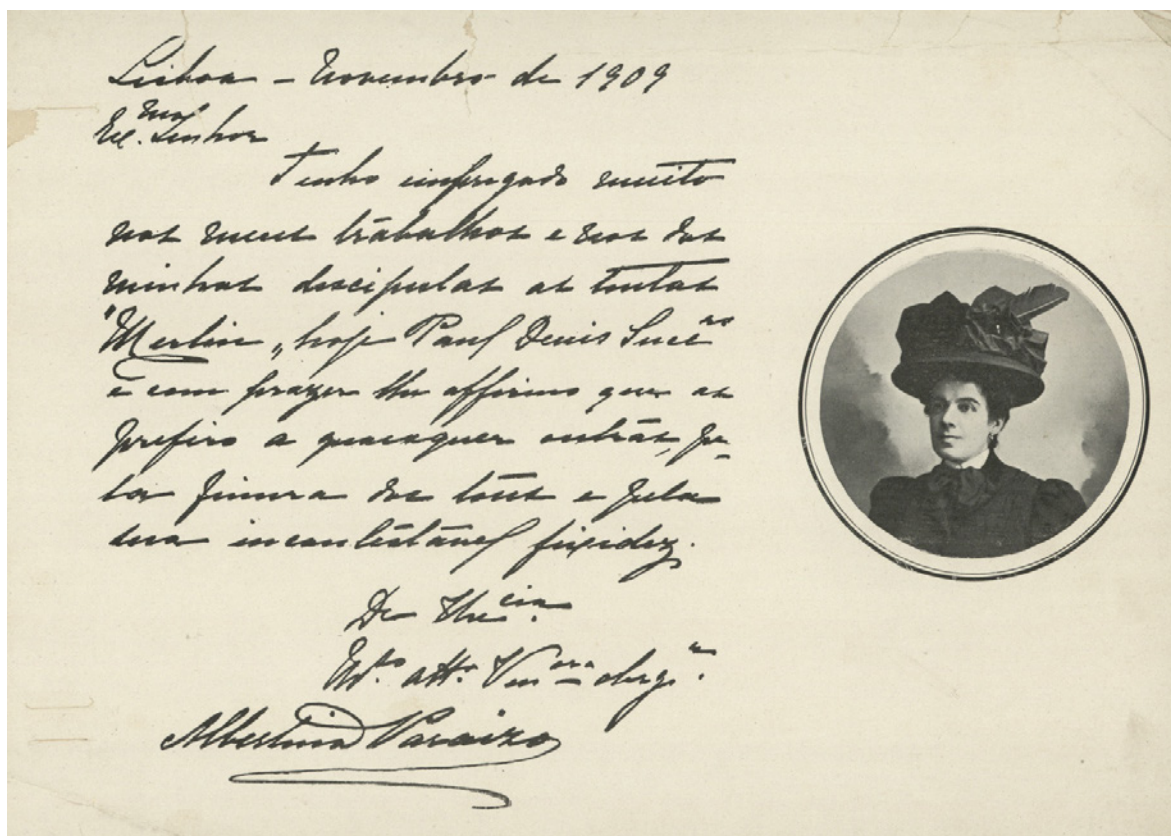 Lisboa – Novembro de 1909
Ex.mo Senhor
Tenho empregado muito
nos meus trabalhos e nos das
minhas discipulas as tintas
"Merlin„ hoje Paul Denis Suc.res
e com prazer lhe affirmo que as
prefiro a quaesquer outras, pe-
la finura dos tons e pela
sua incontestavel fixidez.
De V. Ex.cia
M.to att.a Ven.ora obrig.a
Albertina Paraizo